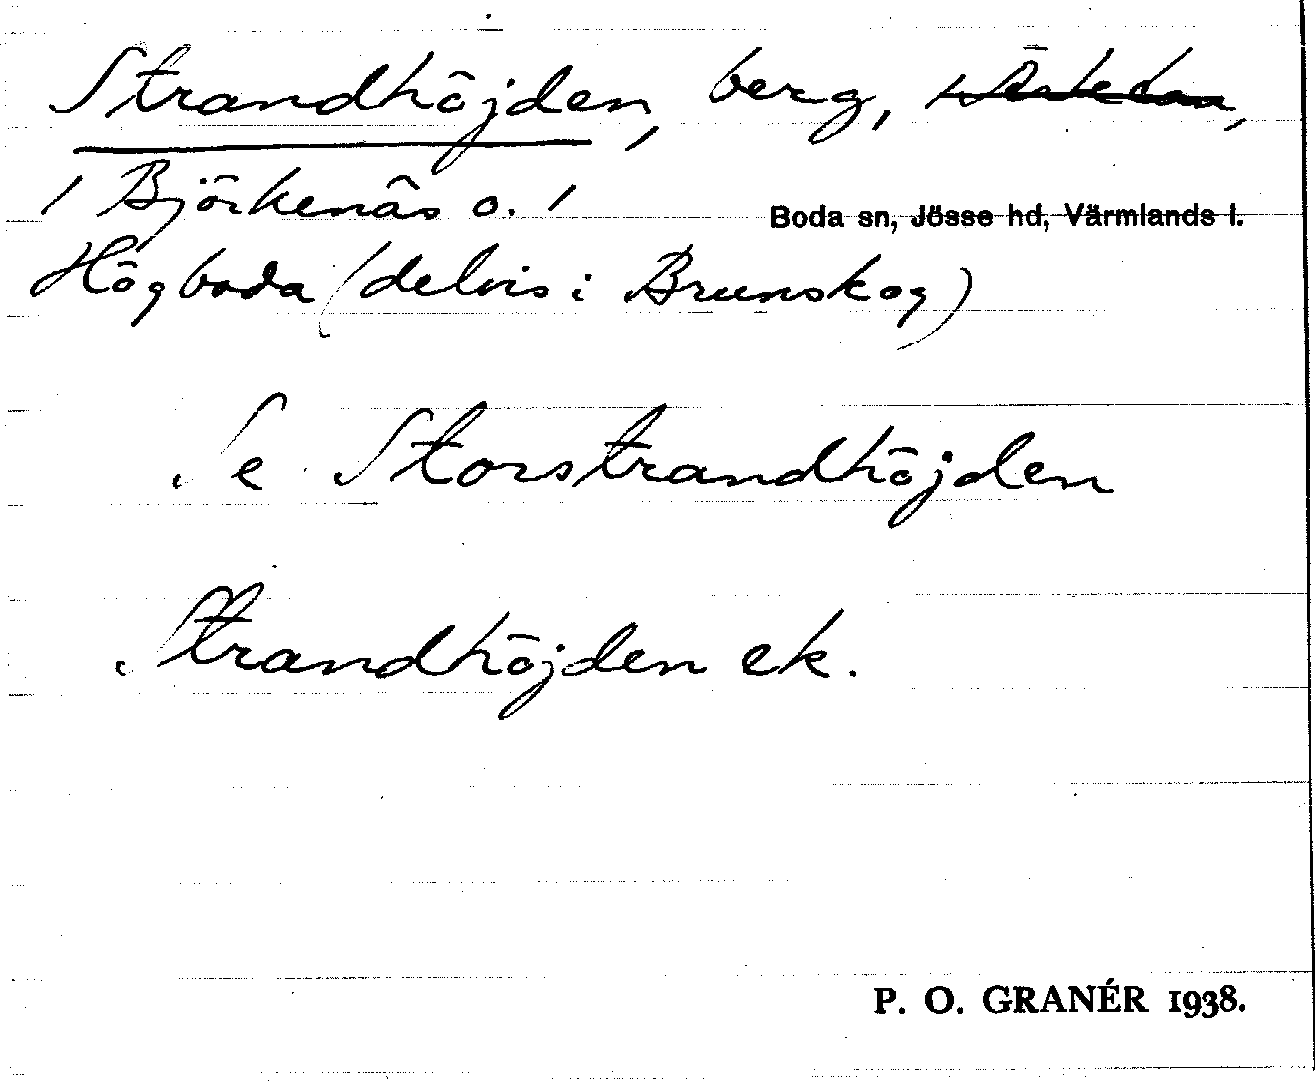 Strandhöjden, berg,
/ Björkenäs o. /
Boda sn, Jösse hd, Värmlands l.
Högboda (delvis i Brunskog)
Se Storstrandhöjden
Strandhöjden ek.
P. O. GRANÉR 1938.